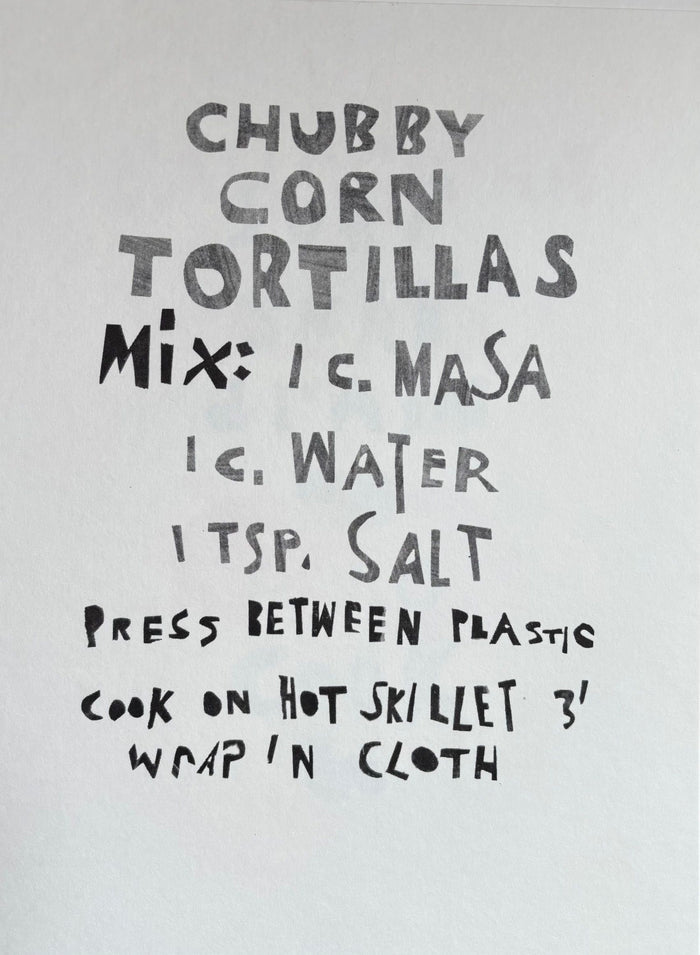 CHUBBY
CORN
TORTILLAS
MiX: 1 C. MASA
1 C. WATER
1 TSP. SALT
PRESS BETWEEN PLASTIC
COOK ON HOT SKILLET 3'
WRAP IN CLOTH